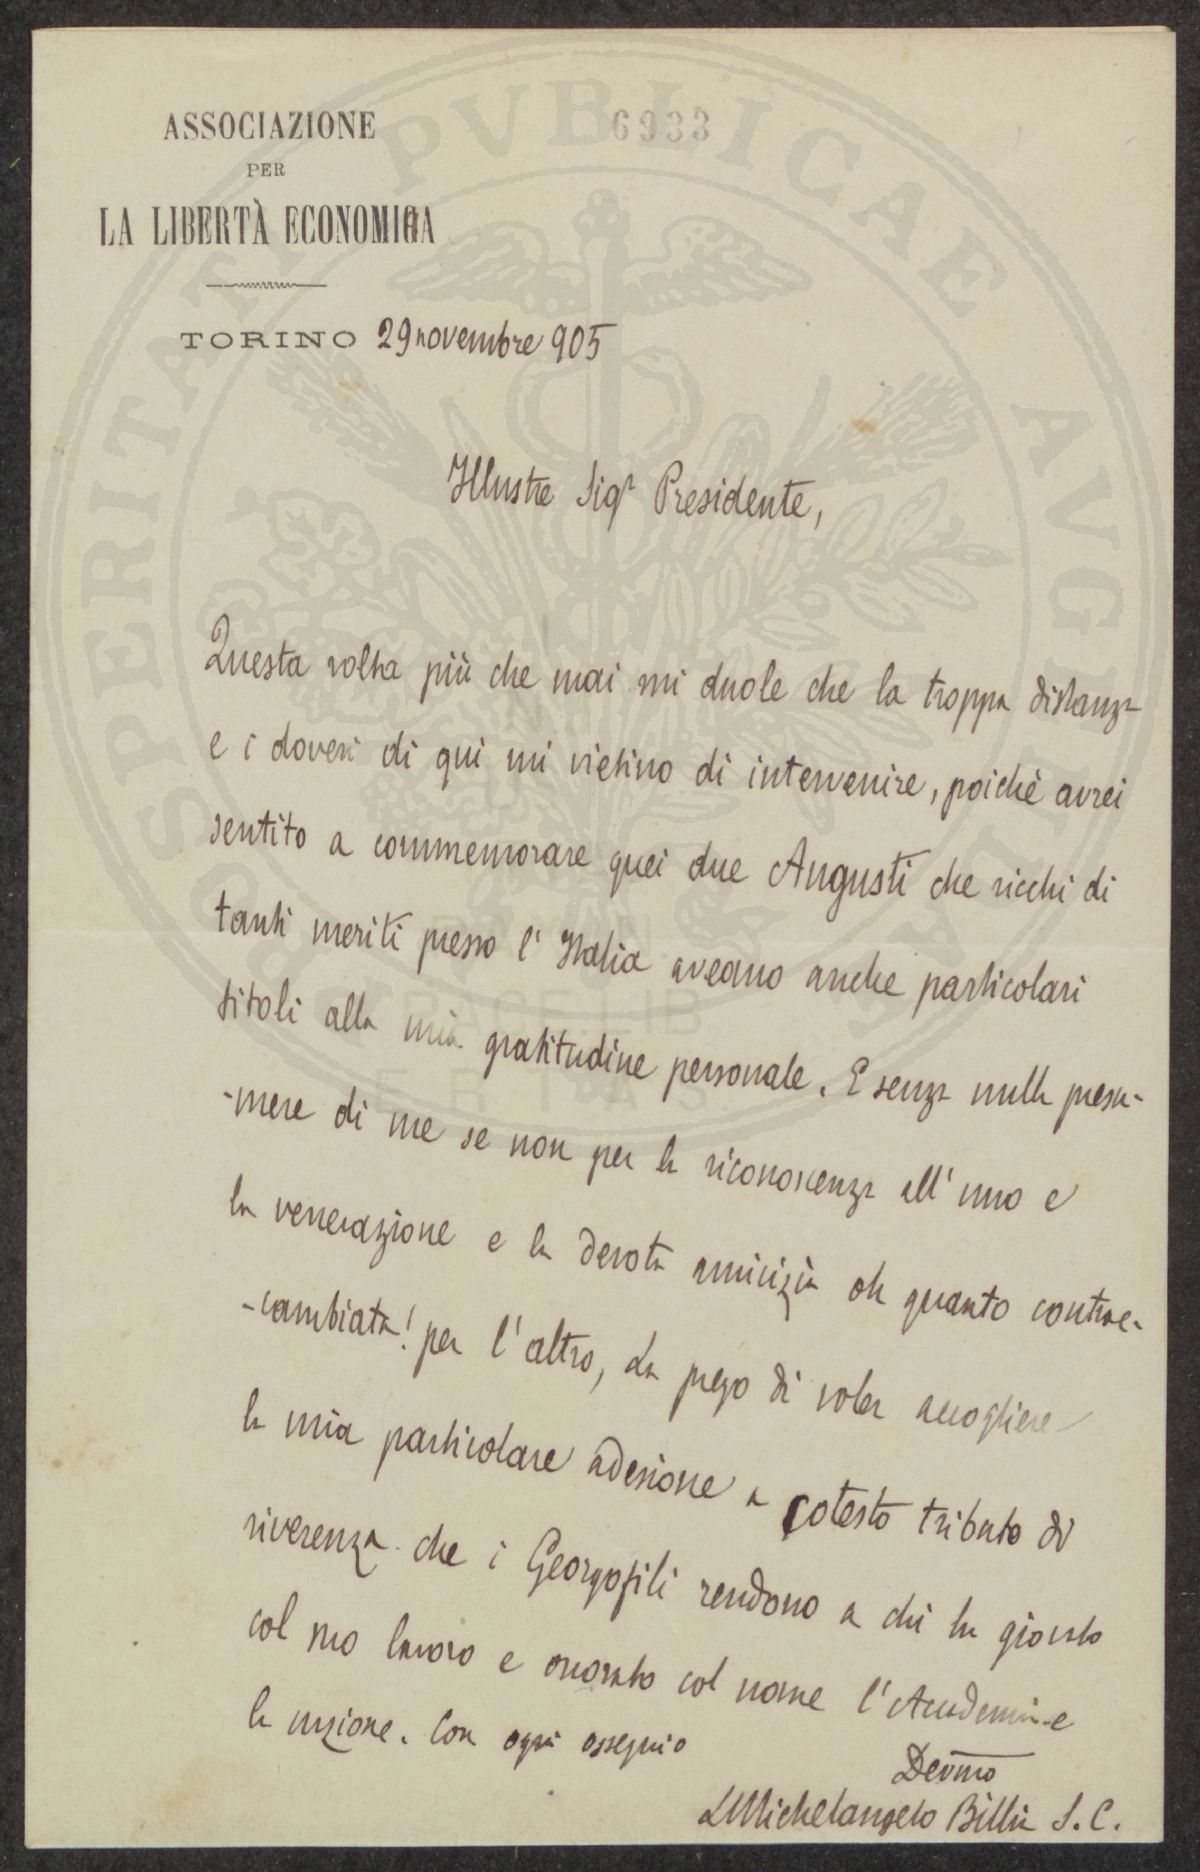 6933
ASSOCIAZIONE
PER
LA LIBERTÀ ECONOMICA
TORINO 29 novembre 905
Illustre Sigr Presidente,
Questa volta più che mai mi duole che la troppa distanza
e i doveri di qui mi vietino di intervenire, poichè avrei
sentito a commemorare quei due Augusti che ricchi di
tanti meriti presso l'Italia aveano anche particolari
titoli alla mia gratitudine personale. E senza nulla presu-
-mere di me se non per la riconoscenza all'uno e
la venerazione e la devota amicizia oh quanto contrac-
-cambiata! per l'altro, La prego di voler accogliere
la mia particolare adesione a cotesto tributo di
riverenza che i Georgofili rendono a chi ha giovato
col suo lavoro e onorato col nome l'Accademia e
la nazione. Con ogni ossequio
Devmo
LMichelangelo Billia S. C.
PROSPERITATI PVBLICAE AVGENDAE